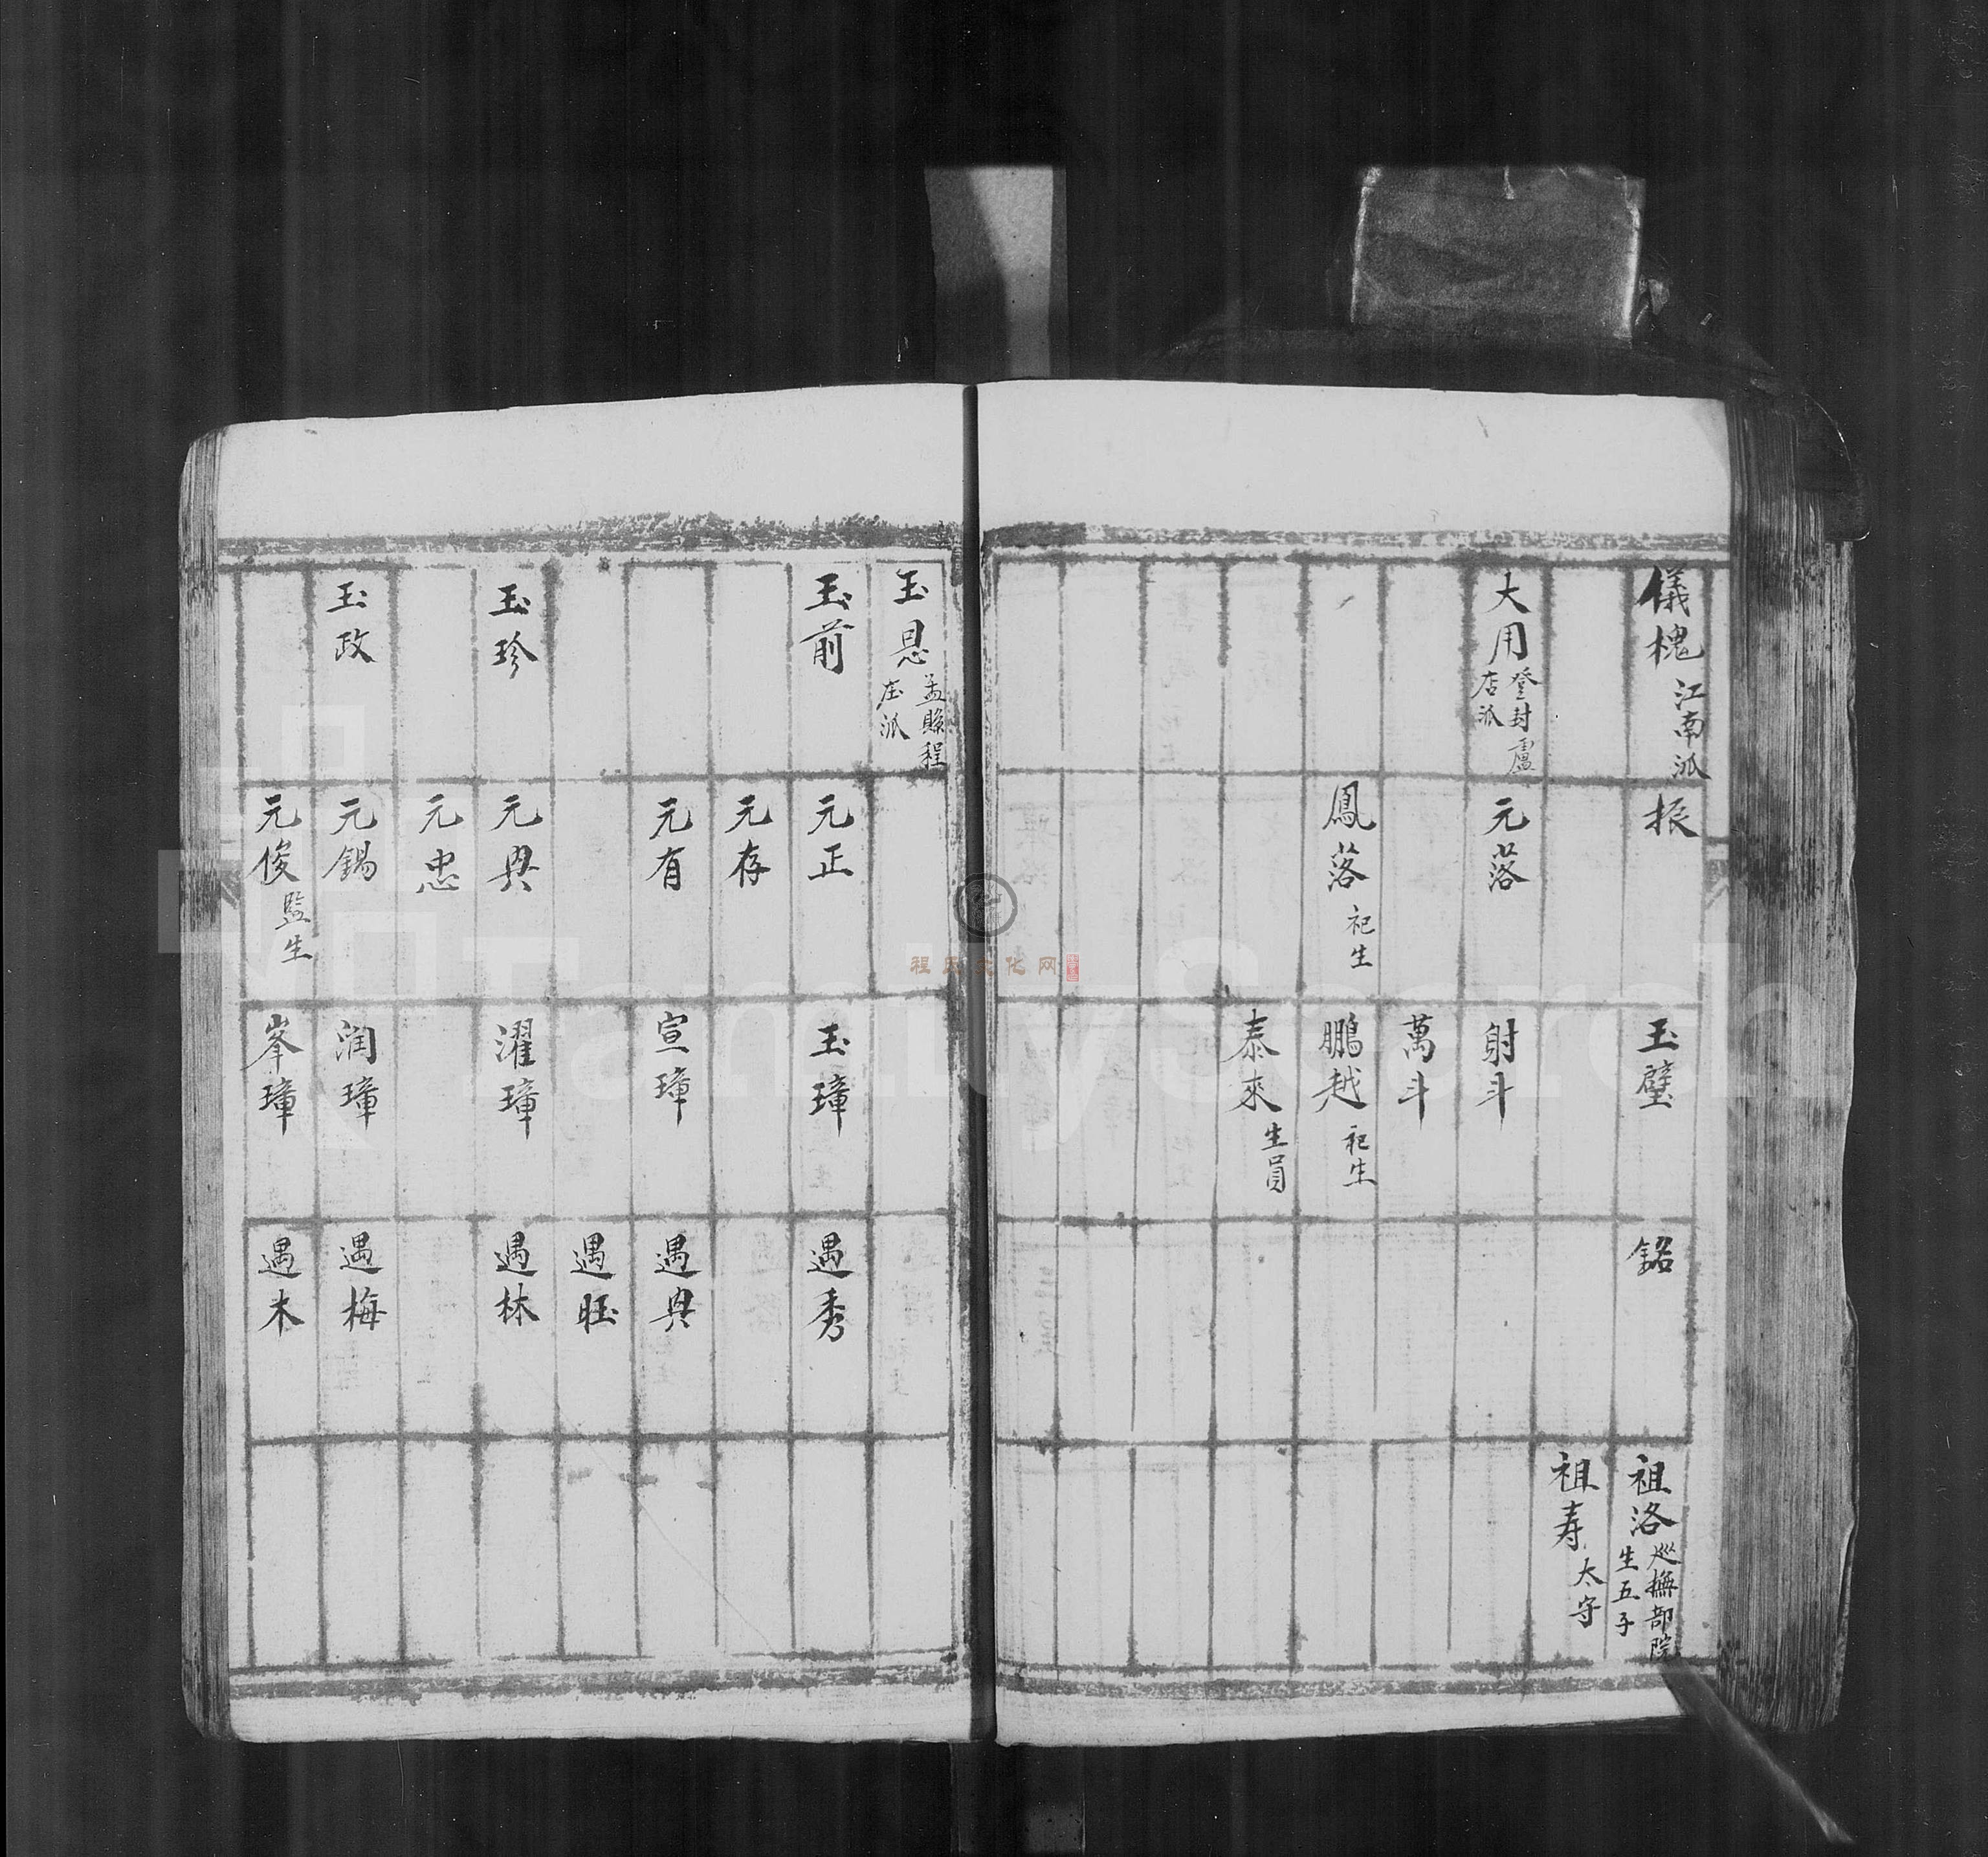 儀槐 江南派
大用 登封盧店派
振
元落
鳳落 祀生
玉璧
射斗
萬斗
鵬越 祀生
泰來 生員
銘
祖洛 巡撫部院 生五子
祖寿 太守
玉恩 孟縣程庄派
玉前
玉珍
玉政
元正
元存
元有
元興
元忠
元錫
元俊 監生
玉璋
宣璋
濯璋
润璋
峯璋
遇秀
遇興
遇旺
遇林
遇梅
遇木
程氏文化网
FamilySearch